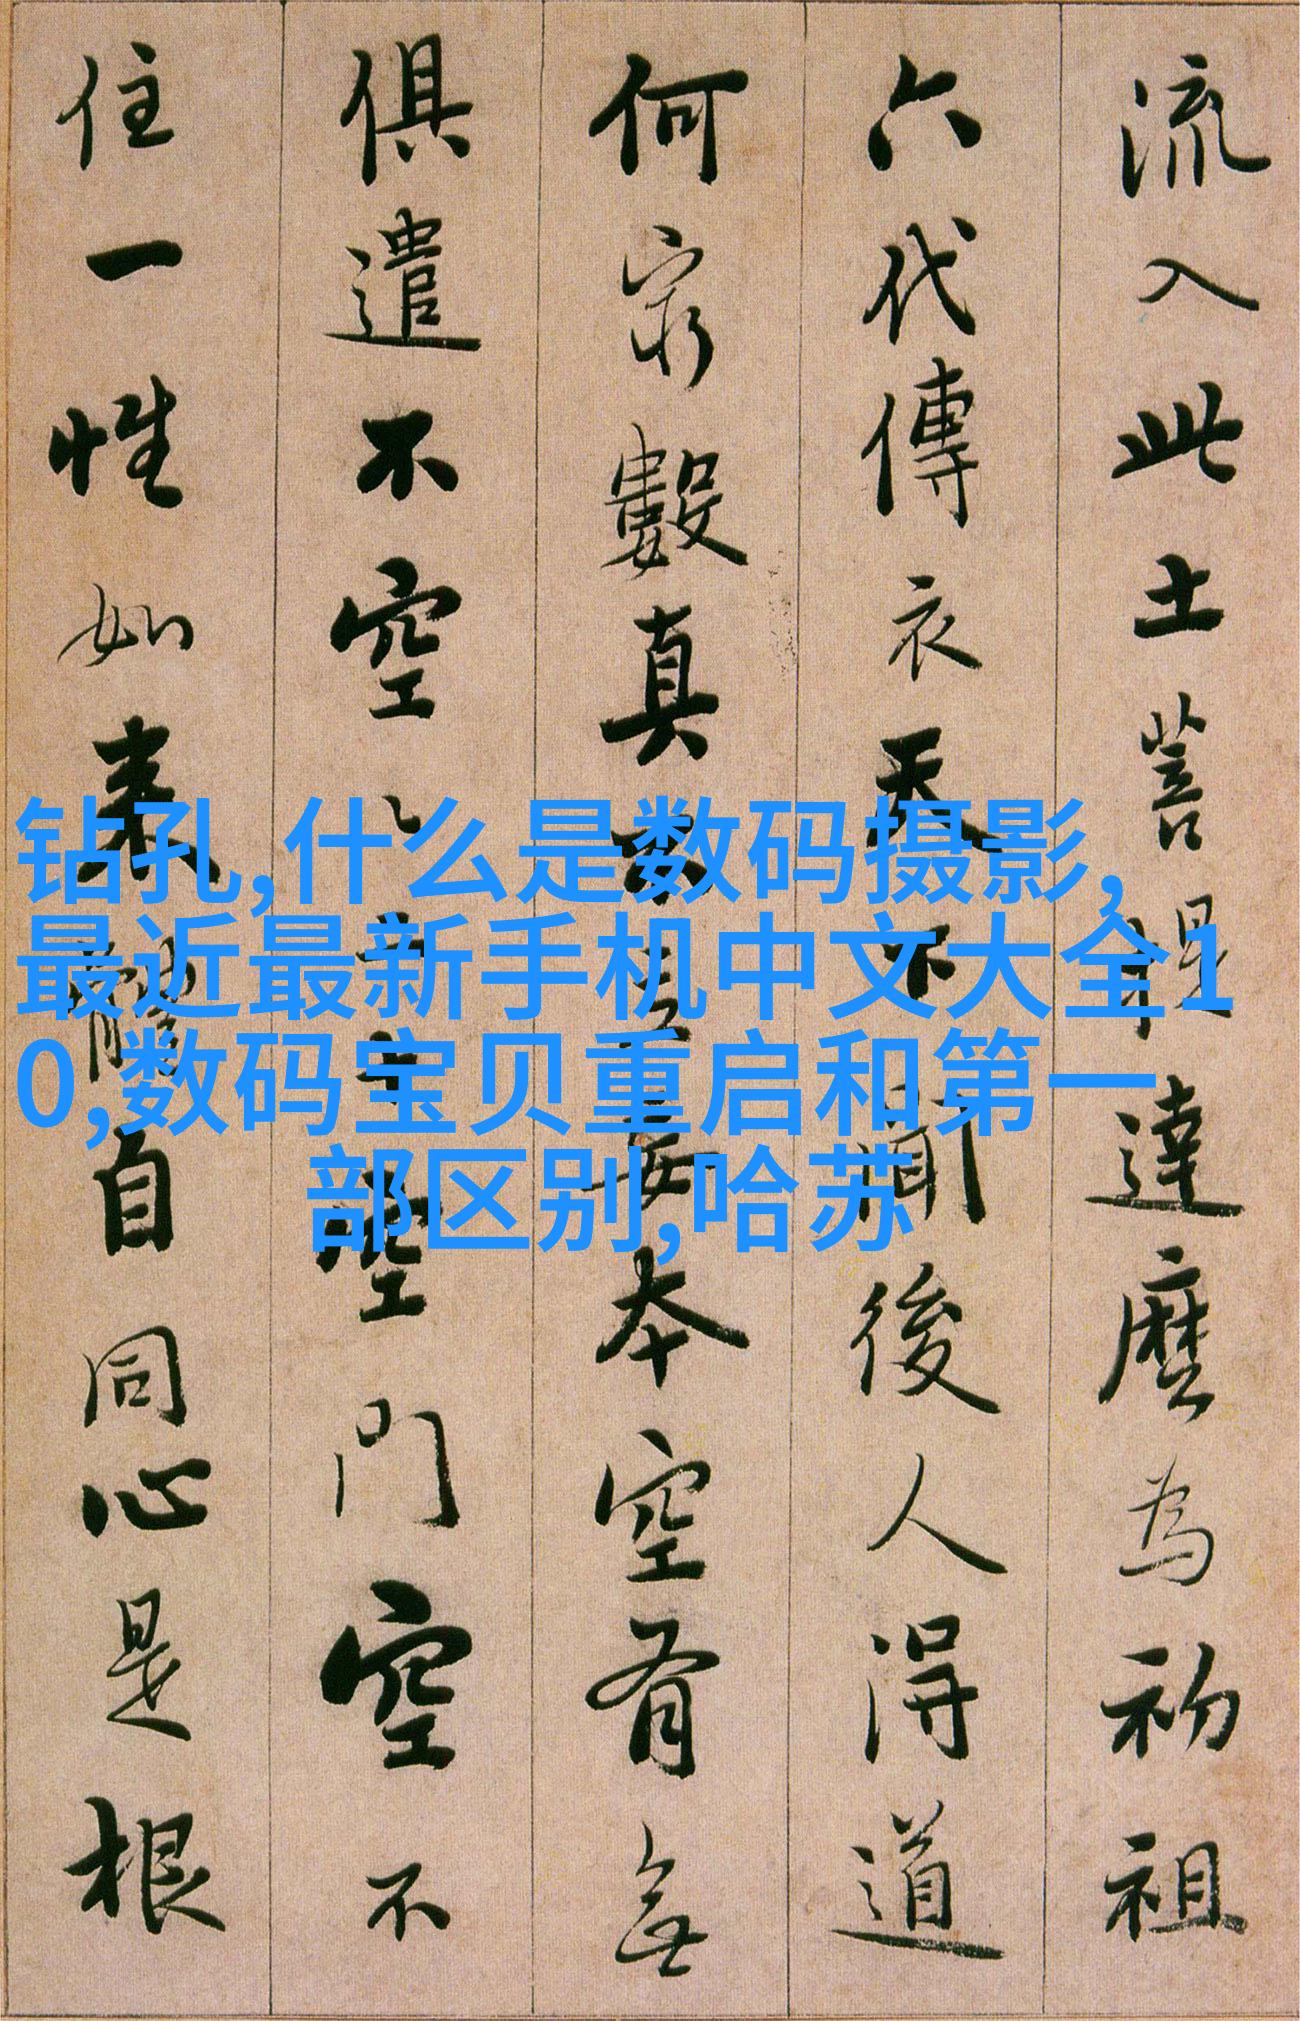 流入此土菩提達麽為初祖
六代傳衣天下聞後人得道
何窮數真不立妄本空有無
俱遣不空〻二十空門空不
住一性如来體自同心是根
钻孔,什么是数码摄影,
最近最新手机中文大全1
0,数码宝贝重启和第一
部区别,哈苏